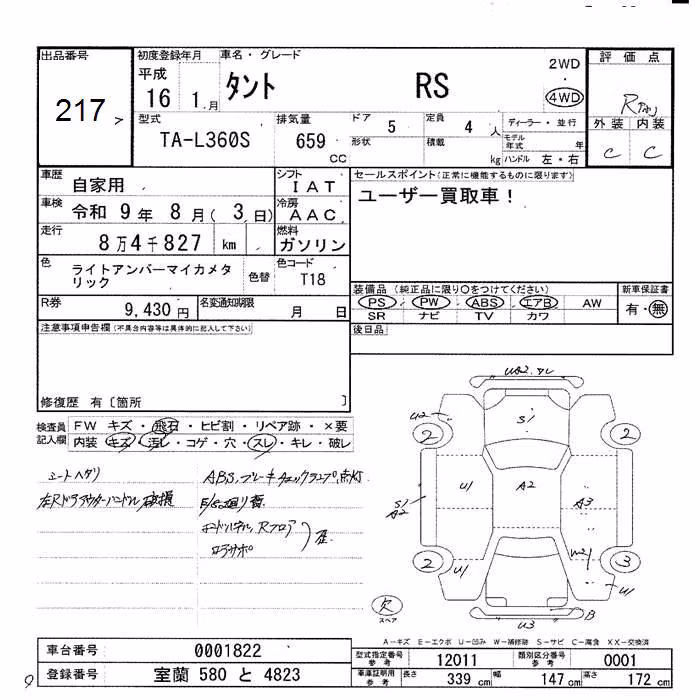 出品番号
217 >
初度登録年月
平成
16 1.月
車名・グレード
タント RS
2WD
4WD
評価点
R
外装 内装
C C
型式
TA-L360S
排気量
659
cc
ドア
5
定員
4 人
ディーラー・並行
形状
積載
kg
モデル
年式
年
ハンドル 左・右
車歴
自家用
シフト
IAT
セールスポイント(正常に機能するものに限ります)
ユーザー買取車！
車検
令和 9年 8月( 3日)
冷房
AAC
走行
8万4千827 km
燃料
ガソリン
色
ライトアンバーマイカメタ
リック
色替
色コード
T18
装備品 (純正品に限り○をつけてください)
PS PW ABS エアB AW
SR ナビ TV カワ
新車保証書
有・無
R券
9,430円
名変通知期限
月 日
後日品
注意事項申告欄(不具合内容等は具体的に記入して下さい)
修復歴 有〔箇所 〕
検査員
記入欄
FW キズ・飛石・ヒビ割・リペア跡・×要
内装 キズ・汚レ・コゲ・穴・スレ・キレ・破レ
シートヘタリ
左Rドアアウターハンドル破損
ABS,ブレーキチェックランプ点灯
Rフロア
コアサポ
U2.
U2
S1
2
2
S1
A2
U1
A2
A3
2
U1
W2
3
U1
B
U3
欠
スペア
A-キズ E-エクボ U-凹み W-補修跡 S-サビ C-腐食 XX-交換済
車台番号
0001822
登録番号
室蘭 580 と 4823
型式指定番号
参考
12011
類別区分番号
参考
0001
車庫証明用
参考
長さ
339 cm
幅
147 cm
高さ
172 cm
9